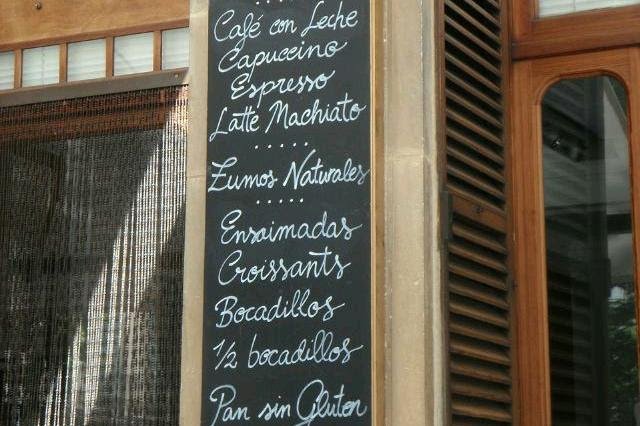 Café con Leche
Capuccino
Espresso
Latte Machiato
Zumos Naturales
Ensaimadas
Croissants
Bocadillos
1/2 bocadillos
Pan sin Gluten